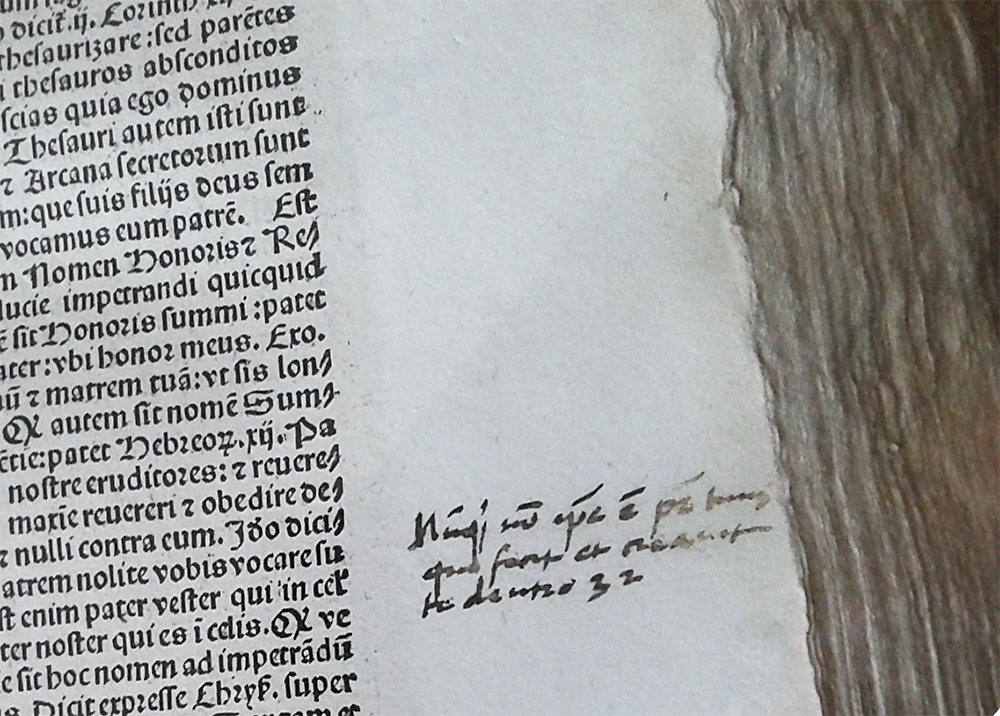 dicit̃.ij. Corinth
thesaurizare:sed parẽtes
i thesauros absconditos
scias quia ego dominus
Thesauri autem isti sunt
⁊ Arcana secretorum sunt
m:que suis filijs deus sem
vocamus eum patrẽ. Est
n Nomen Honoris⁊ Re/
lucie impetrandi quicquid
ẽ sit Honoris summi:patet
ater:vbi honor meus. Exo.
ũ ⁊ matrem tuã:vt sis lon/
Ql autem sit nomẽ Sum/
ẽtie:patet Hebreoꝝ.xij. Pa
nostre eruditores: ⁊ reuere/
maxīe reuereri ⁊ obedire de/
⁊ nulli contra eum. Jdo dici/
atrem nolite vobis vocare su
st enim pater vester qui in cel
ter noster qui es ī celis. Ql ve
e sit hoc nomen ad impetrãdũ
Dicit expresse Chryß. super
Nũqj nõ ipẽ ẽ pr̃ tuus
qui fecit et creauit
te deutro 32